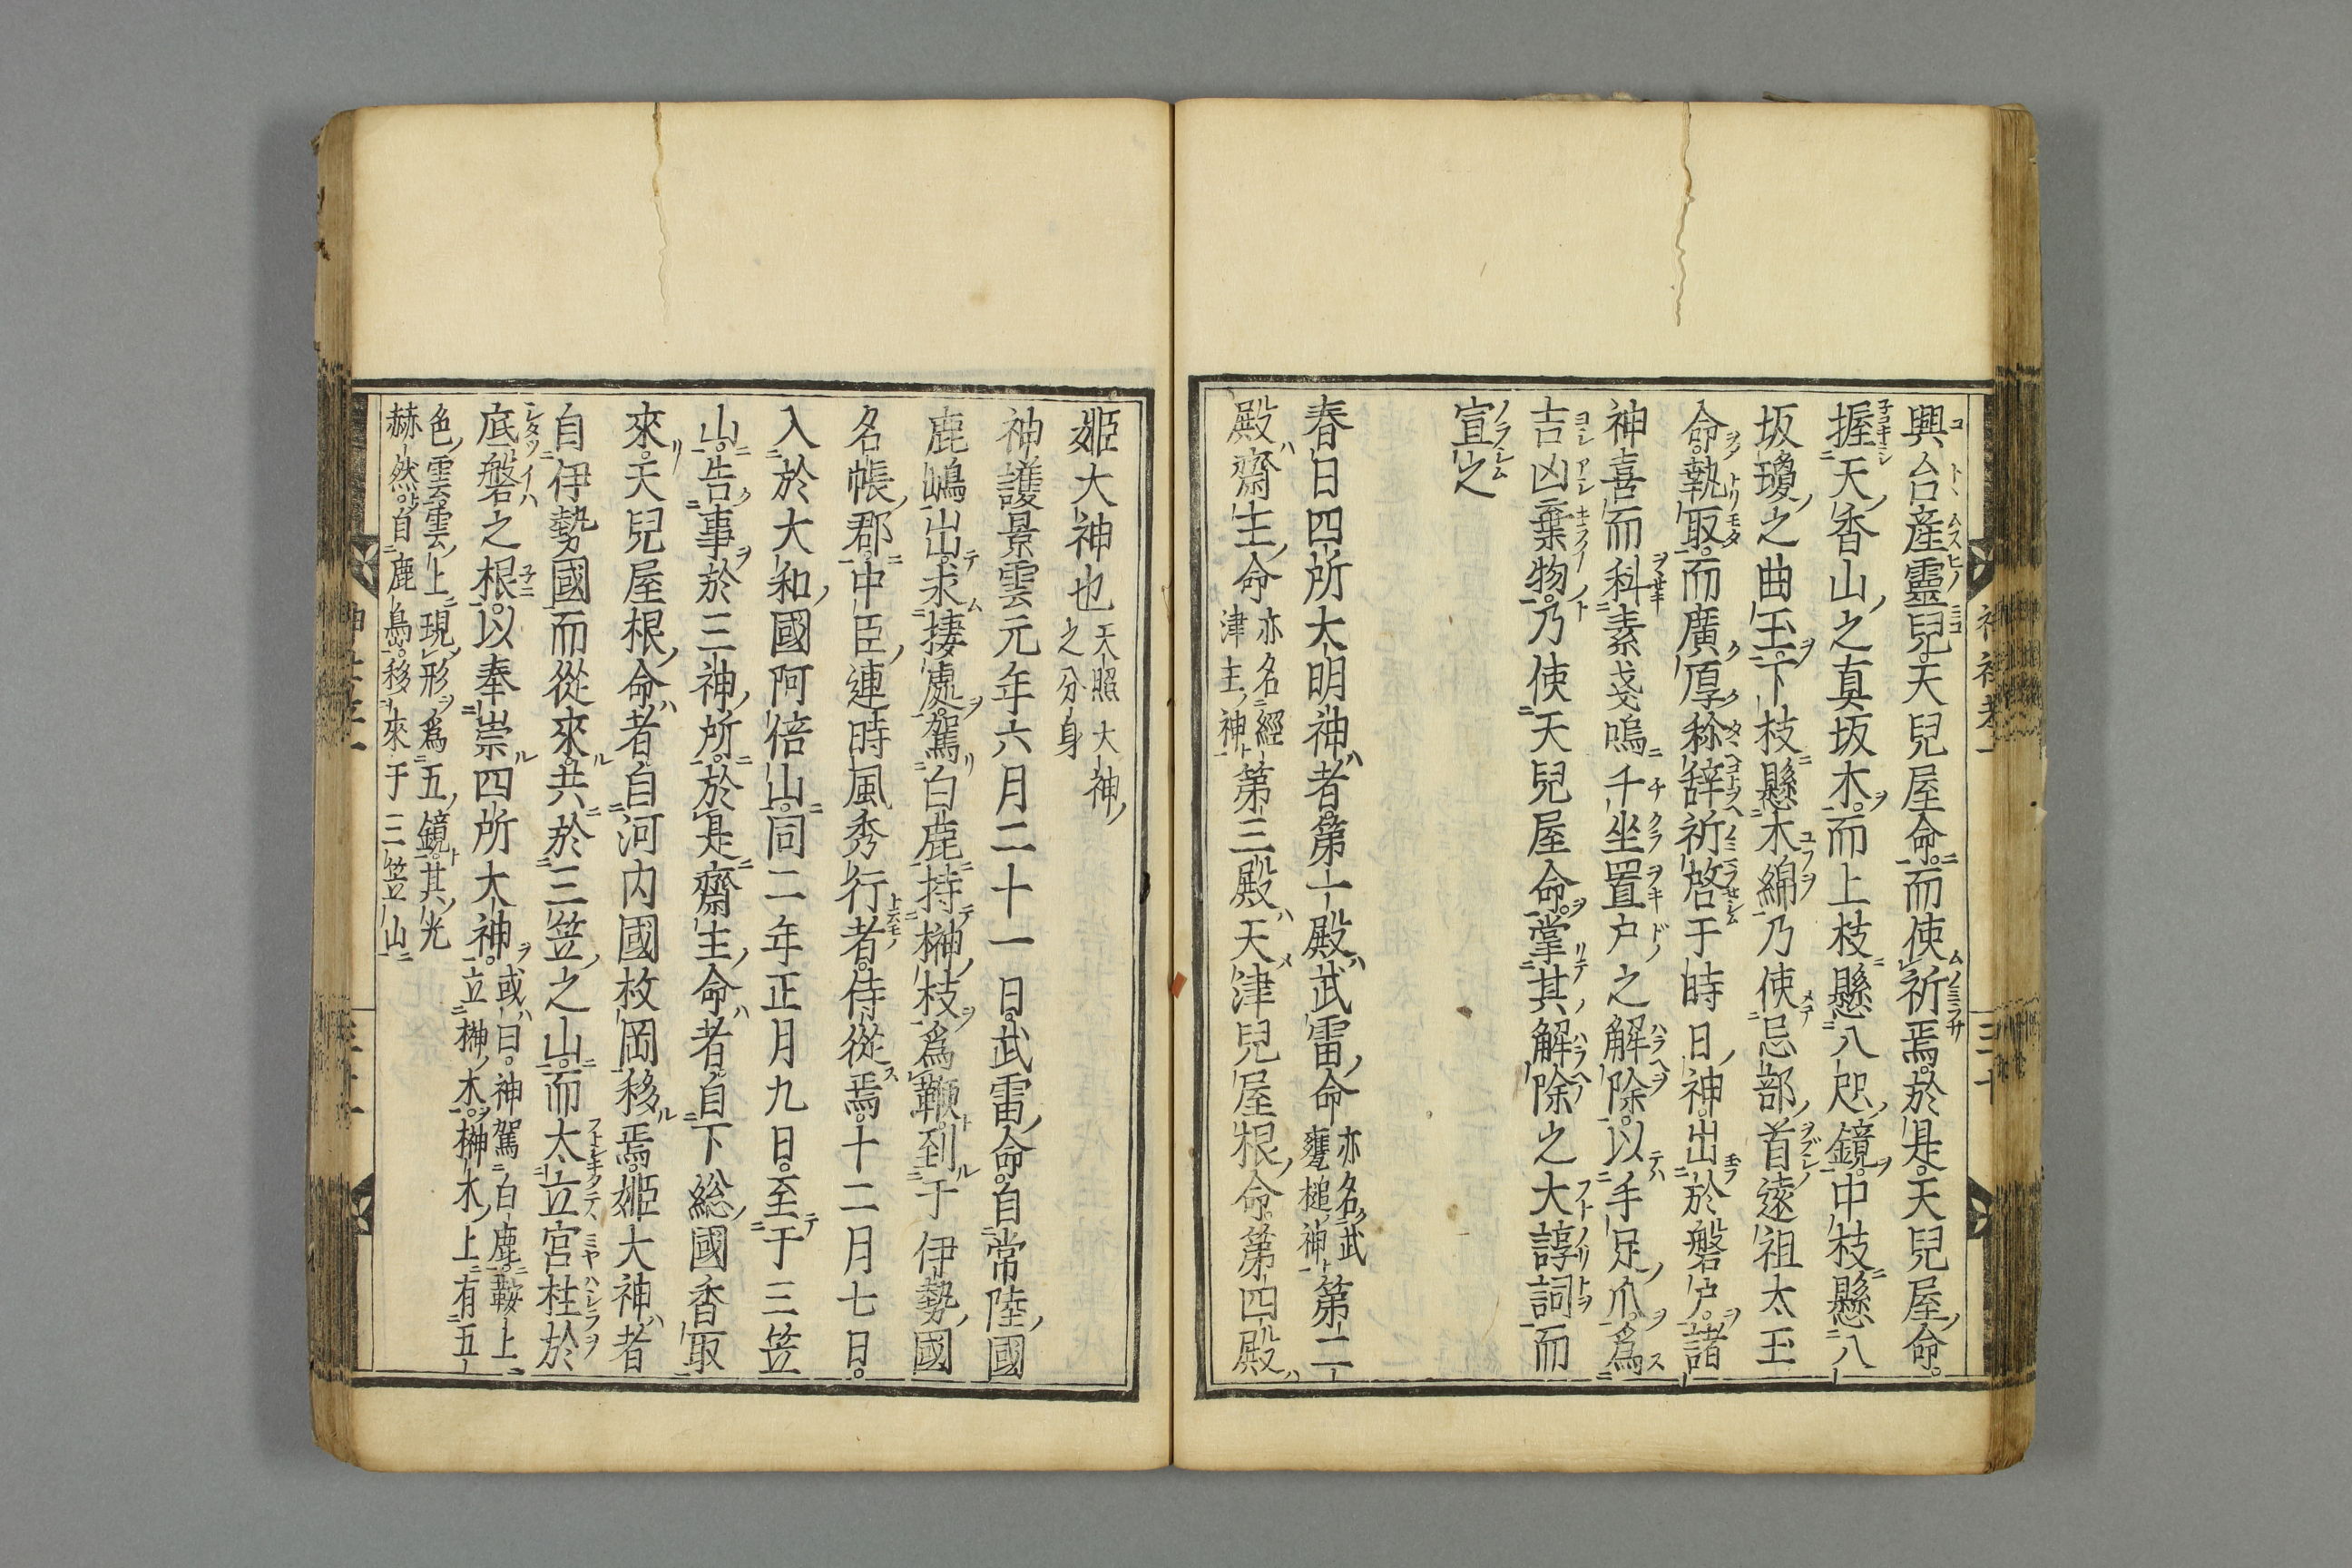 興台産靈兒天兒屋命而使祈焉於是天兒屋命
握天香山之真坂木而上枝懸八咫鏡中枝懸八
坂瓊之曲玉下枝懸木綿乃使忌部首遠祖太玉
命執取而廣厚稱辞祈啓于時日神出於磐戸諸
神喜而科素戔嗚千坐置戸之解除以手足爪爲
吉凶棄物乃使天兒屋命掌其解除之大諄詞而
宣之
春日四所大明神者第一殿武雷命亦名武甕槌神第二
殿齋主命亦名經津主神第三殿天津兒屋根命第四殿
姫大神也天照大神之分身
神護景雲元年六月二十一日武雷命自常陸國
鹿嶋出求捿處駕白鹿持榊枝爲鞭到于伊勢國
名帳郡中臣連時風秀行者侍從焉十二月七日
入於大和國阿倍山同二年正月九日至于三笠
山告事於三神所於是齋主命者自下総國香取
來天兒屋根命者自河内國枚岡移焉姫大神者
自伊勢國而從來共於三笠之山而太立宮柱於
底磐之根以奉崇四所大神或曰神駕白鹿鞍上立榊木榊木上有五
色雲雲上現形爲五鏡其光赫然自鹿島移來于三笠山